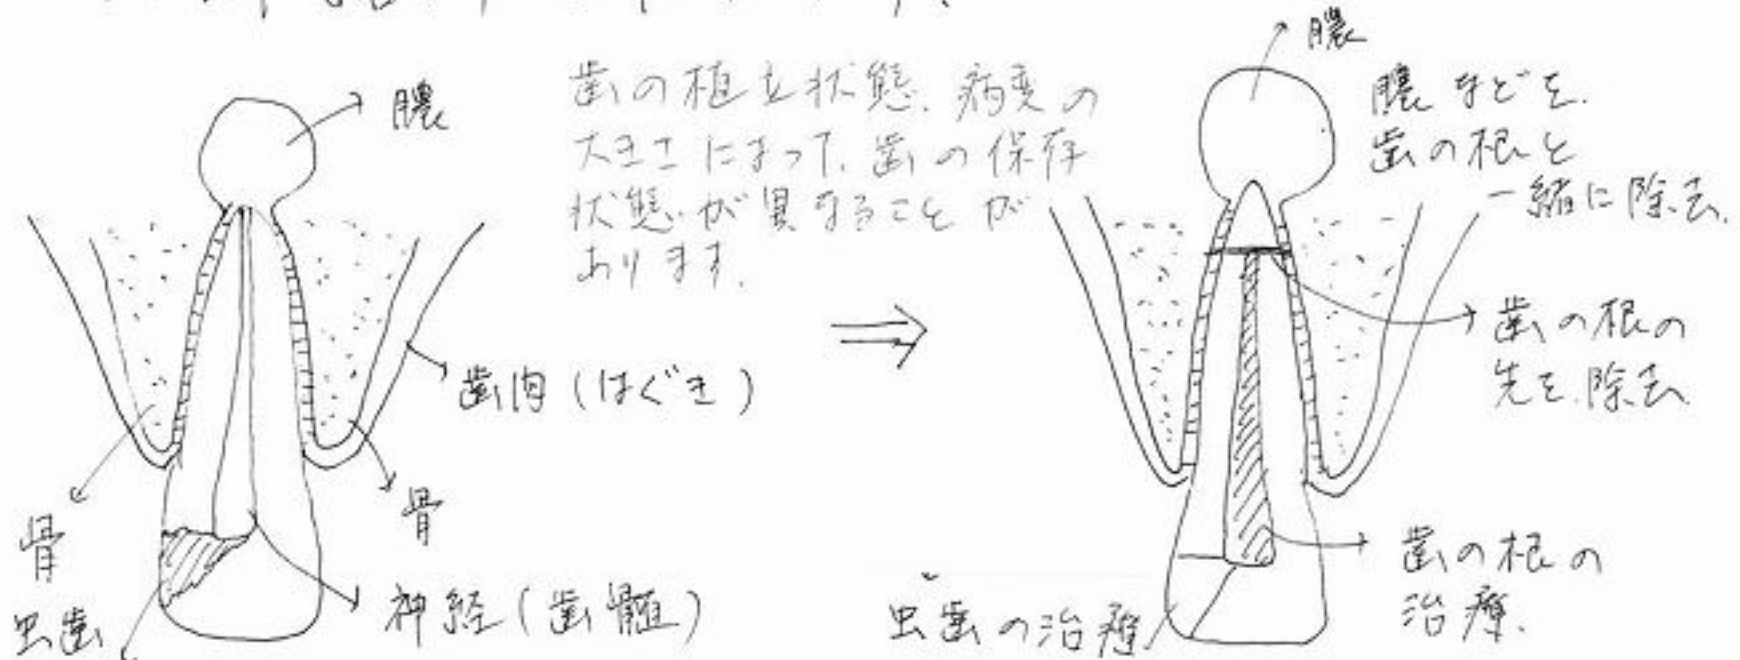 膿
歯の植立状態、病変の
大きさによって、歯の保存
状態が異なることが
あります。
歯肉(はぐき)
骨
骨
虫歯
神経(歯髄)
膿
膿などを、
歯の根と
一緒に除去、
歯の根の
先を、除去
歯の根の
治療、
虫歯の治療